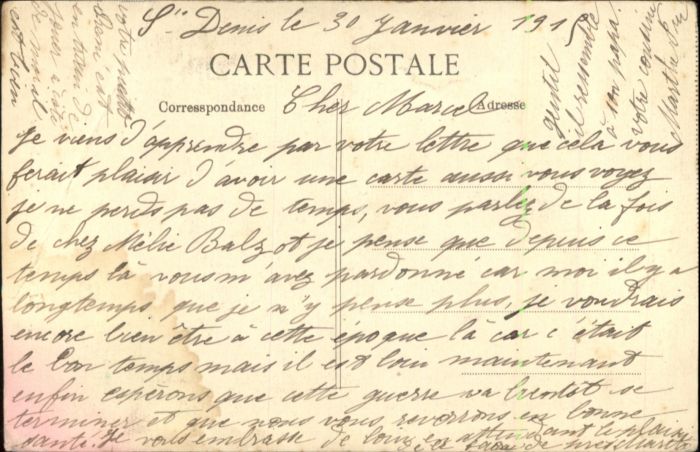 St Denis le 30 Janvier 1915
CARTE POSTALE
Correspondance
Adresse
Cher Marcel
je viens d'apprendre par votre lettre que cela vous
ferait plaisir d'avoir une carte aussi vous voyez
je ne perds pas de temps, vous parlez de la fois
de chez Mélie Balzot je pense que depuis ce
temps là vous m'avez pardonné car moi il y a
longtemps que je n'y pense plus, je voudrais
encore bien être à cette époque là car c'était
le bon temps mais il est loin maintenant
enfin espérons que cette guerre va bientôt se
terminer et que nous nous reverrons en bonne
santé. Je vous embrasse de loin en attendant le plaisir
de le faire de près
votre
est
en train de
jouer à côté
de moi il
est bien
gentil
il ressemble
à son papa.
votre cousine
Marthe